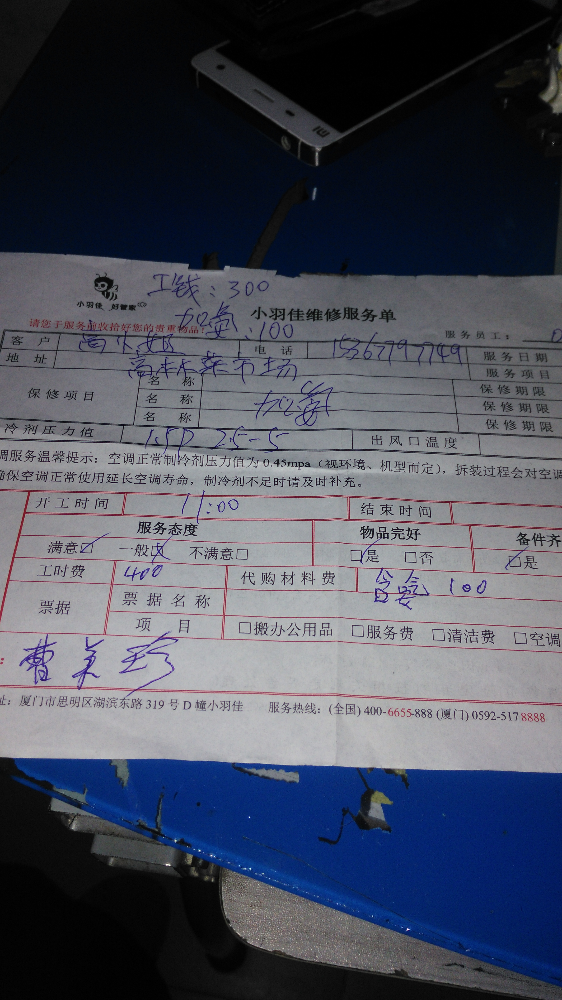 工钱：300
小羽佳 好管家
加氟：100
小羽佳维修服务单
请您于服务前收拾好您的贵重物品！
服务员工：
客户 电话 15367797749 服务日期
地址 高林菜市场 服务项目
保修项目 名称 保修期限
名称 加氟 保修期限
名称 保修期限
冷剂压力值 1.5P 25-5 出风口温度
调服务温馨提示：空调正常制冷剂压力值为 0.45mpa（视环境、机型而定），拆装过程会对空调
确保空调正常使用延长空调寿命，制冷剂不足时请及时补充。
开工时间 11:00 结束时间
服务态度 物品完好 备件齐
满意☑ 一般☑ 不满意□ ☑是 □否 ☑是
工时费 400 代购材料费 100
票据 票据名称
项目 □搬办公用品 □服务费 □清洁费 □空调
：曹美珍
址：厦门市思明区湖滨东路 319 号 D 幢小羽佳 服务热线：(全国) 400-6655-888 (厦门) 0592-5178888